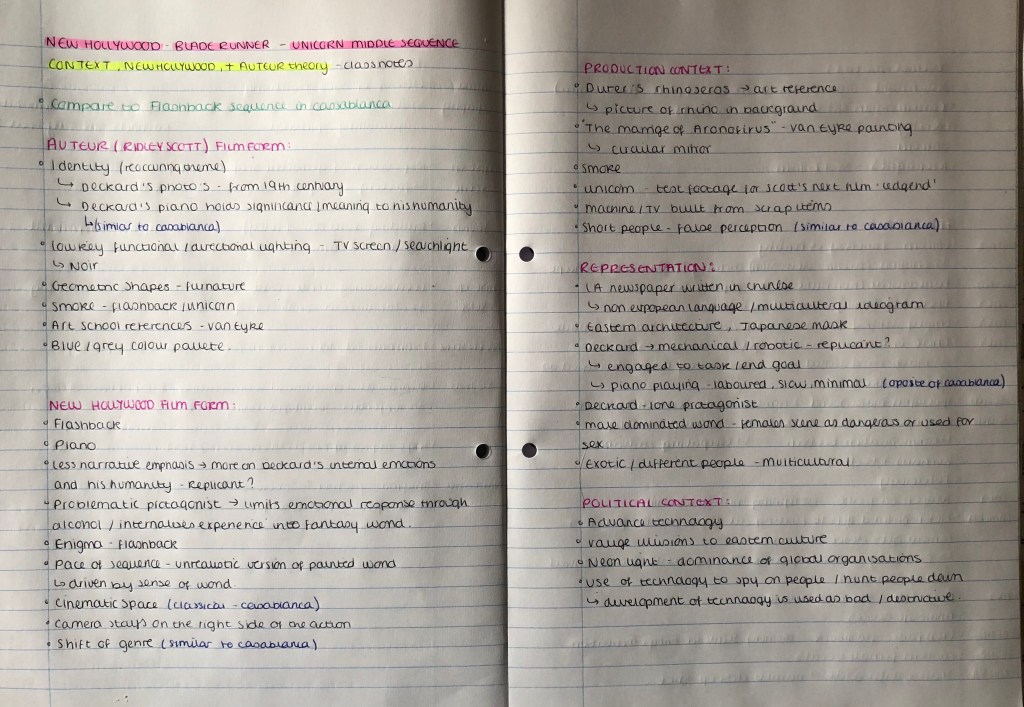 NEW HOLLYWOOD - BLADE RUNNER - UNICORN MIDDLE SEQUENCE
CONTEXT, NEW HOLLYWOOD, + AUTEUR theory - class notes
• Compare to Flashback sequence in casablanca
AUTEUR (RIDLEY SCOTT) FILM FORM:
• Identity (reoccuring theme)
↳ Deckard's photo's - from 19th century
↳ Deckard's piano holds significance / meaning to his humanity
↳ (similar to casablanca)
• low key functional / directional lighting - TV screen / searchlight
↳ Noir
• Geometric shapes - furnature
• Smoke - flashback / unicorn
• Art school references - van Eyke
• Blue / grey colour pallete.
NEW HOLLYWOOD FILM FORM:
• Flashback
• Piano
• less narrative emphasis → more on Deckard's internal emotions
and his humanity - Replicant?
• Problematic protagonist → limits emotional response through
alcohol / internalises experience into fantasy world.
• Enigma - flashback
• Pace of sequence - unrealistic version of painted world
↳ driven by sense of world
• Cinematic space (classical - casablanca)
• Camera stays on the right side of the action
• Shift of genre (similar to casablanca)
PRODUCTION CONTEXT:
• Durer's rhinoseros → art reference
↳ picture of rhino in background
• "The marrige of Aronofirus" - van Eyke painting
↳ circular mirror
• Smoke
• unicorn - test footage for scott's next film 'Ledgend'
• machine / TV built from scrap items
• Short people - false perception (similar to casablanca)
REPRESENTATION:
• LA newspaper written in chinese
↳ non european language / multicultral ideogram
• Eastern architecture, Japanese mask
• Deckard → mechanical / robotic - replicant?
↳ engaged to task / end goal
↳ piano playing - laboured, slow, minimal (oposite of casablanca)
• Deckard - lone protagonist
• male dominated world - females scene as dangeras or used for
sex.
• Exotic / different people - multicultural
POLITICAL CONTEXT:
• Advance technology
• vauge illusions to eastern culture
• Neon light - dominance of global organisations
• Use of technology to spy on people / hunt people down
↳ development of technology is used as bad / destructive.